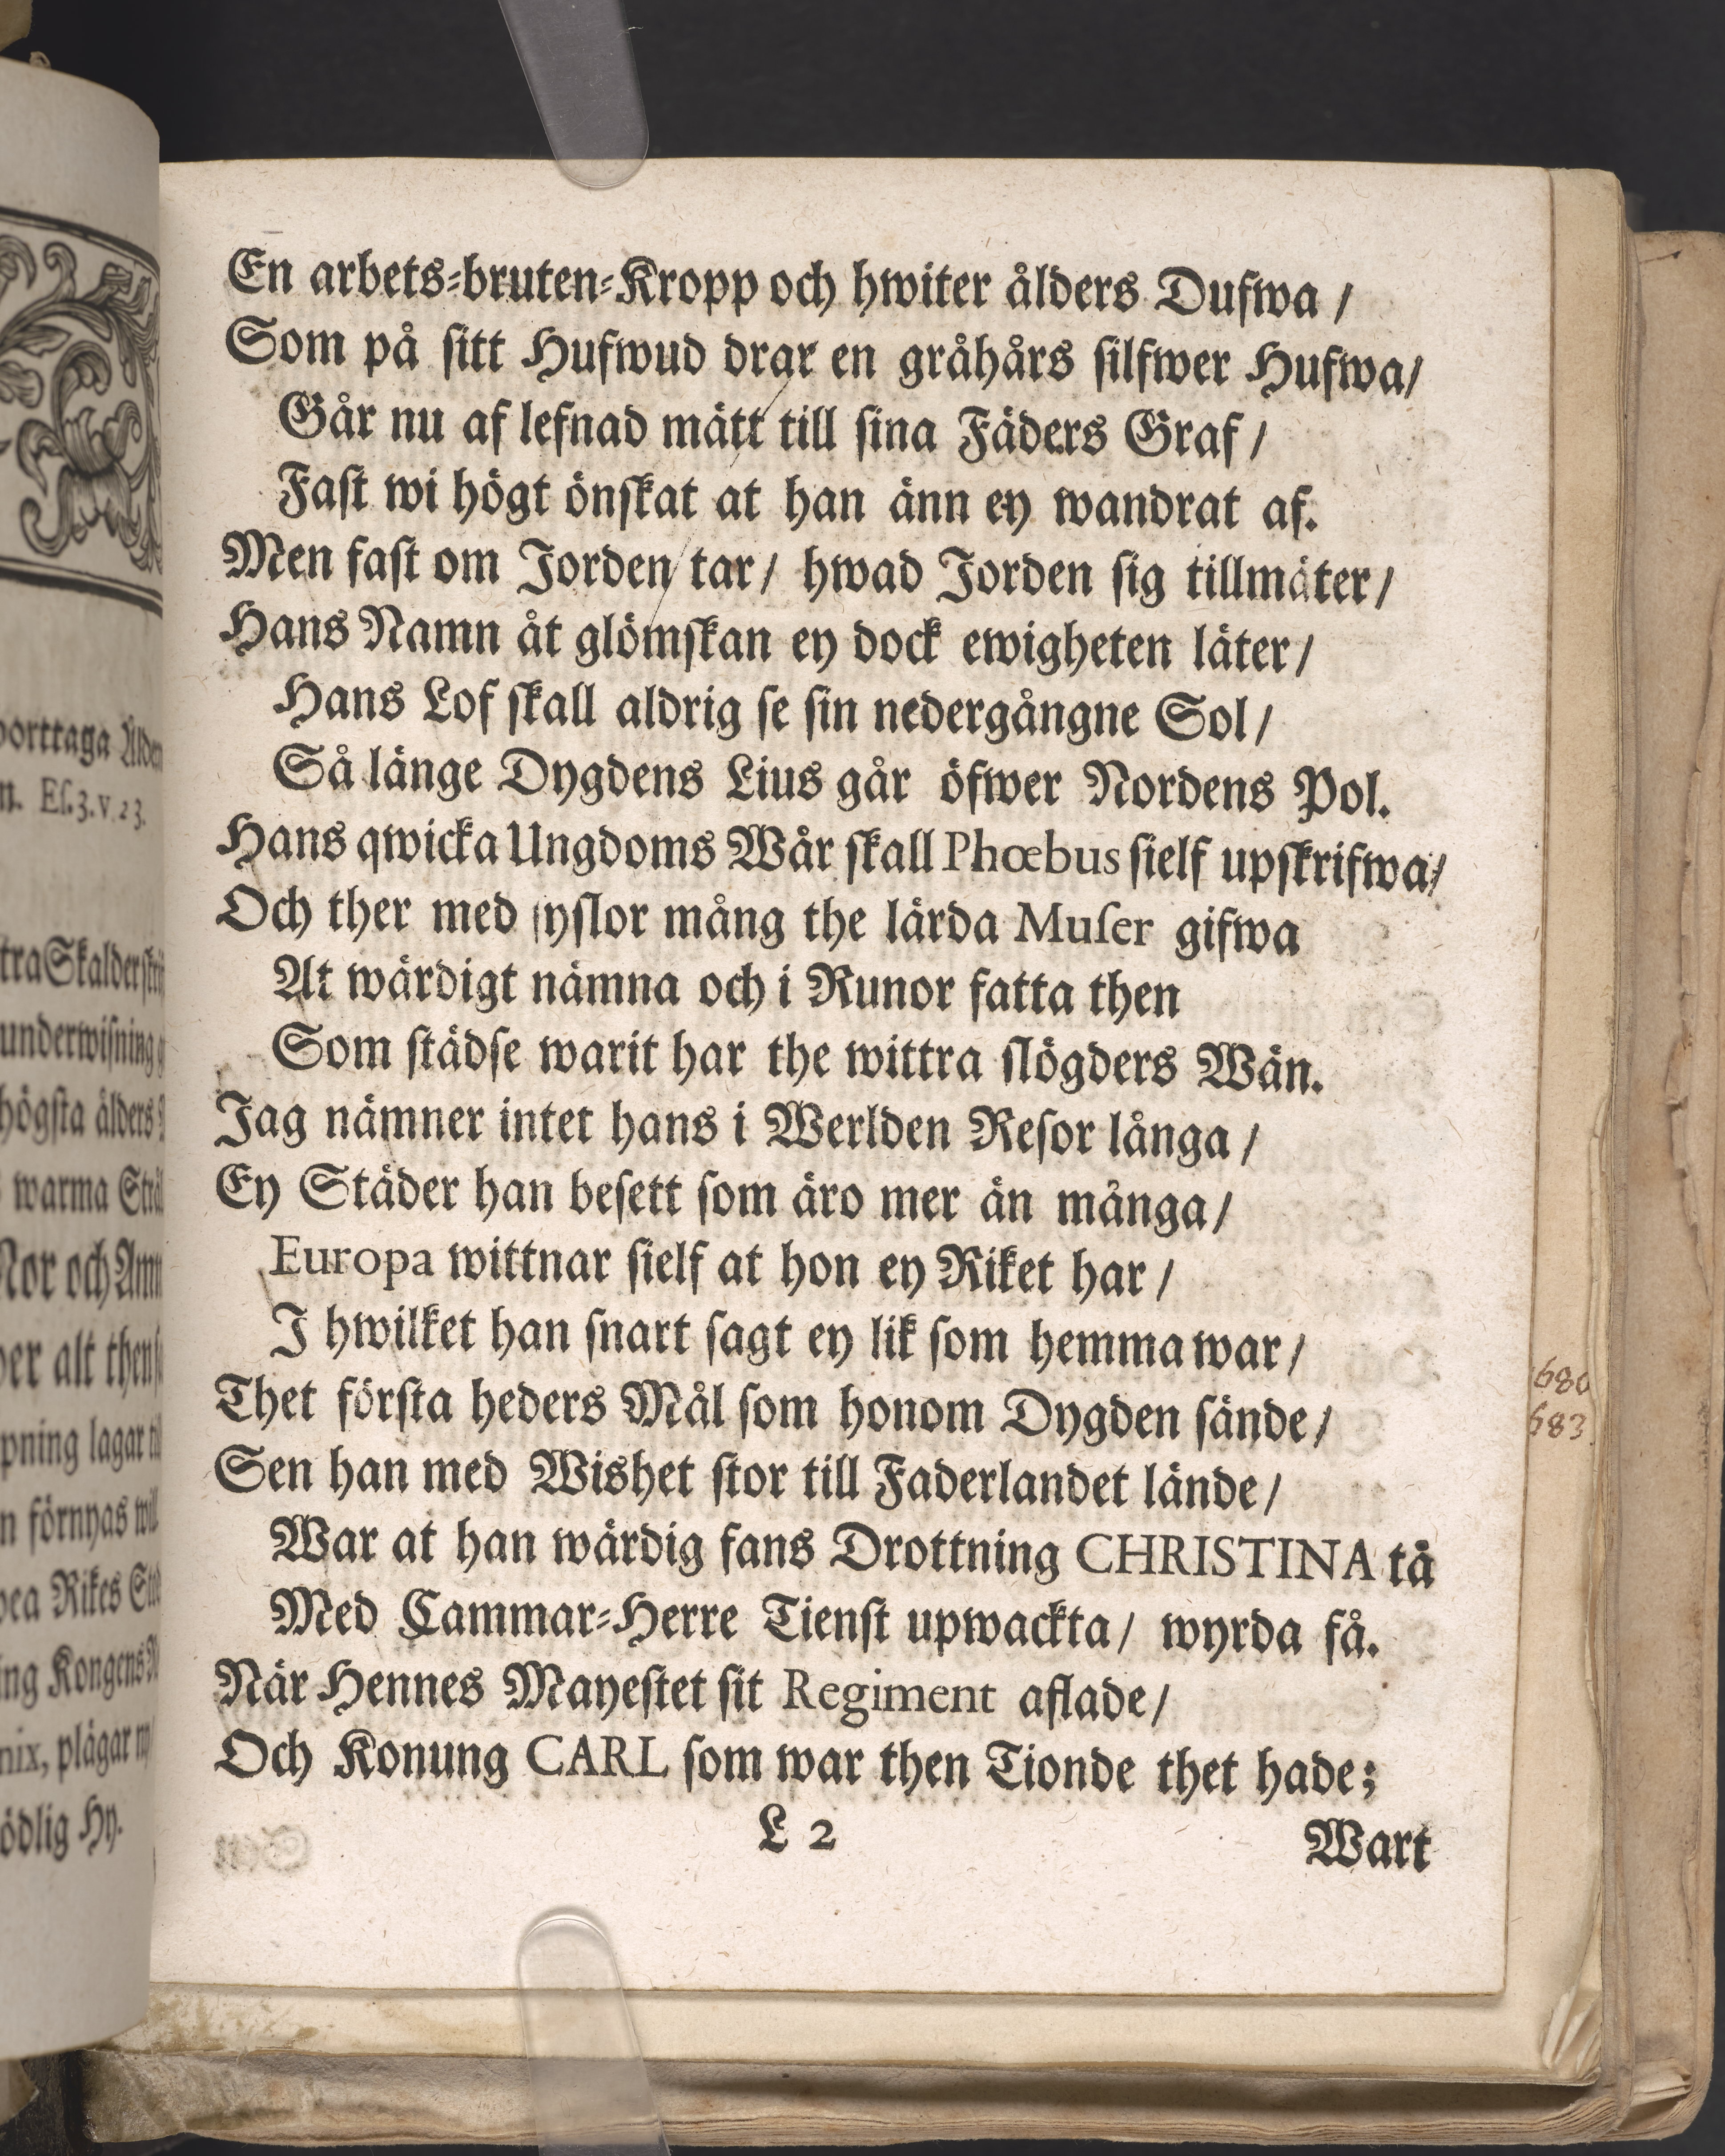 En arbets-bruten-Kropp och hwiter ålders Dufwa /
Som på sitt Hufwud drar en gråhårs silfwer Hufwa/
Går nu af lefnad mätt till sina Fäders Graf /
Fast wi högt önskat at han änn ey wandrat af.
Men fast om Jorden tar / hwad Jorden sig tillmäter /
Hans Namn åt glömskan ey dock ewigheten läter /
Hans Lof skall aldrig se sin nedergångne Sol /
Så länge Dygdens Lius går öfwer Nordens Pol.
Hans qwicka Ungdoms Wår skall Phœbus sielf upskrifwa/
Och ther med syslor mång the lärda Muser gifwa
At wärdigt nämna och i Runor fatta then
Som städse warit har the wittra slögders Wän.
Jag nämner intet hans i Werlden Resor långa /
Ey Städer han besett som äro mer än många /
Europa wittnar sielf at hon ey Riket har /
I hwilket han snart sagt ey lik som hemma war /
Thet första heders Mål som honom Dygden sände /
Sen han med Wishet stor till Faderlandet lände /
War at han wärdig fans Drottning CHRISTINA tå
Med Cammar-Herre Tienst upwackta / wyrda få.
När Hennes Mayestet sit Regiment aflade /
Och Konung CARL som war then Tionde thet hade;
L 2
Wart
borttaga
n. Es. 3. v. 23.
tra Skalder
underwisning
högsta ålders
warma
Nor och
er alt then
pning lagar
n förnyas
Rikes
ing Kongens
nix, plägar
ödlig Hy.
1680
683